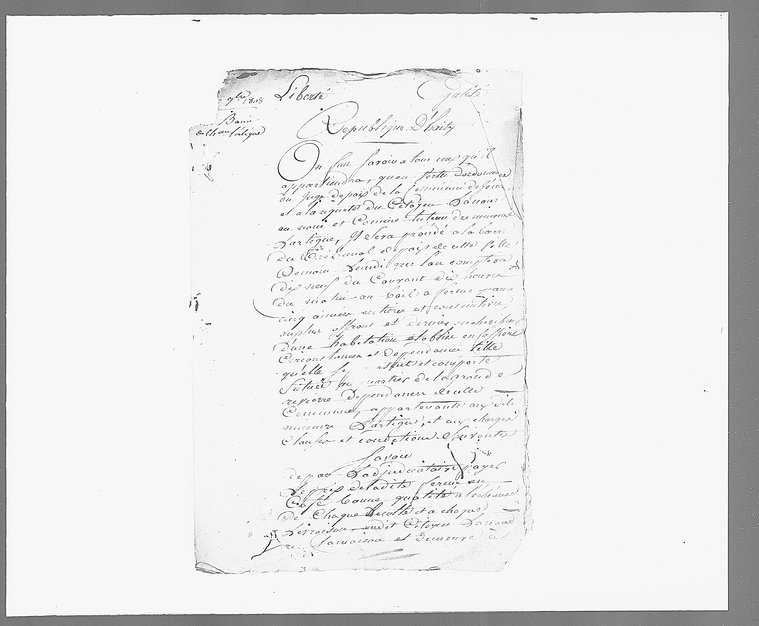 Liberté Egalité
9bre 1808
Republique D'haity
Bail
On fait savoir a tous ceux qu'il
appartiendra, qu'en vertu
du Juge depaix de la Commune
et a la requete du Citoyen
au nom et Comme tuteur des mineurs
Lartigue, Il sera procédé a la barre
du Tribunal depaix de cette Ville
Demain Lundi que l'on comptera
dix neuf du Courant dix heures
du matin au Bail a ferme pour
cinq années entieres et consecutives
au plus offrant et dernier encherisseur
d'une habitation etablie en Caffiers
Circonstances et dependances telle
qu'elle se et comporte
Située au quartier de la grande
reviere Dependance de cette
Commune, appartenante aux dits
mineurs Lartigue, et aux charges
Clauses et conditions Suivantes
Savoir
de par L'adjudicataire payer
le prix de ladite ferme en
Café bonne qualité a l'echéance
de Chaque Recolte et a chaque
Livraison, audit Citoyen
en sa maison et demeure a